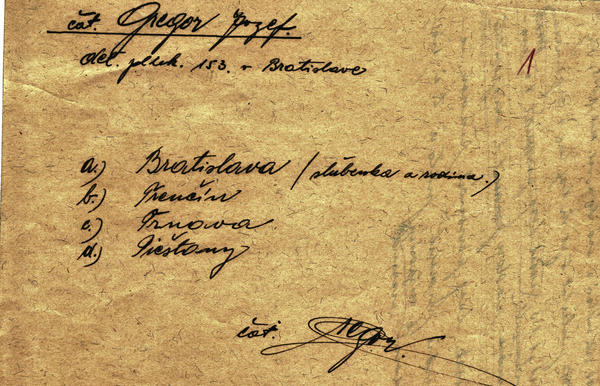 čat. Gregor Jozef.
del. pluk. 153. v Bratislave
1
a.) Bratislava / slúbenka a rodina.)
b.) Trenčín
c.) Trnava
d.) Piešťany
čat. Gregor.